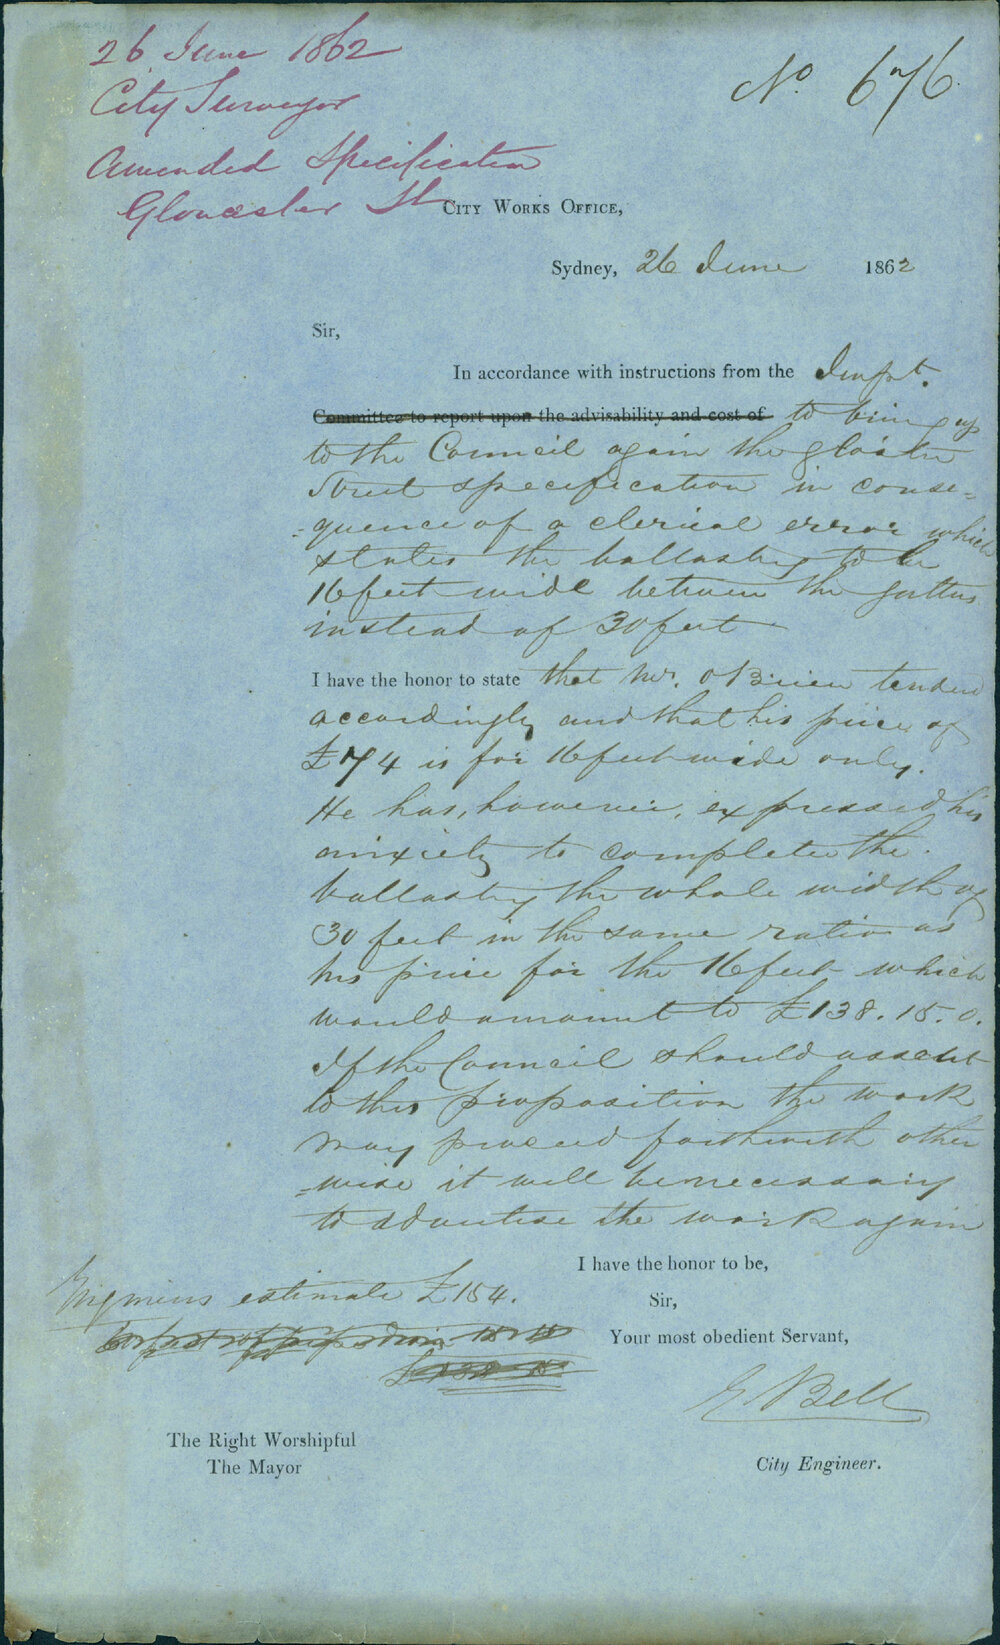 26 June 1862
City Surveyor
Amended Specification
Gloucester St
No 676
CITY WORKS OFFICE,
Sydney, 26 June 1862
Sir,
In accordance with instructions from the
Committee to report upon the advisability and cost of to bring up
to the Council again the
Street specification in conse=
=quence of a clerical error which
states the ballasting to be
16 feet wide between the gutters
instead of 30 feet
I have the honor to state that Mr. O'Brien tendered
accordingly and that his price of
£74 is for 16 feet wide only.
He has, however, expressed his
anxiety to complete the
ballasting the whole width of
30 feet in the same ratio as
his price for the 16 feet which
would amount to £138.15.0.
If the Council should assent
to this proposition the work
may proceed forthwith other
=wise it will be necessary
to advertise the work again
I have the honor to be,
Sir,
Your most obedient Servant,
estimate £154.
E Bell
City Engineer.
The Right Worshipful
The Mayor